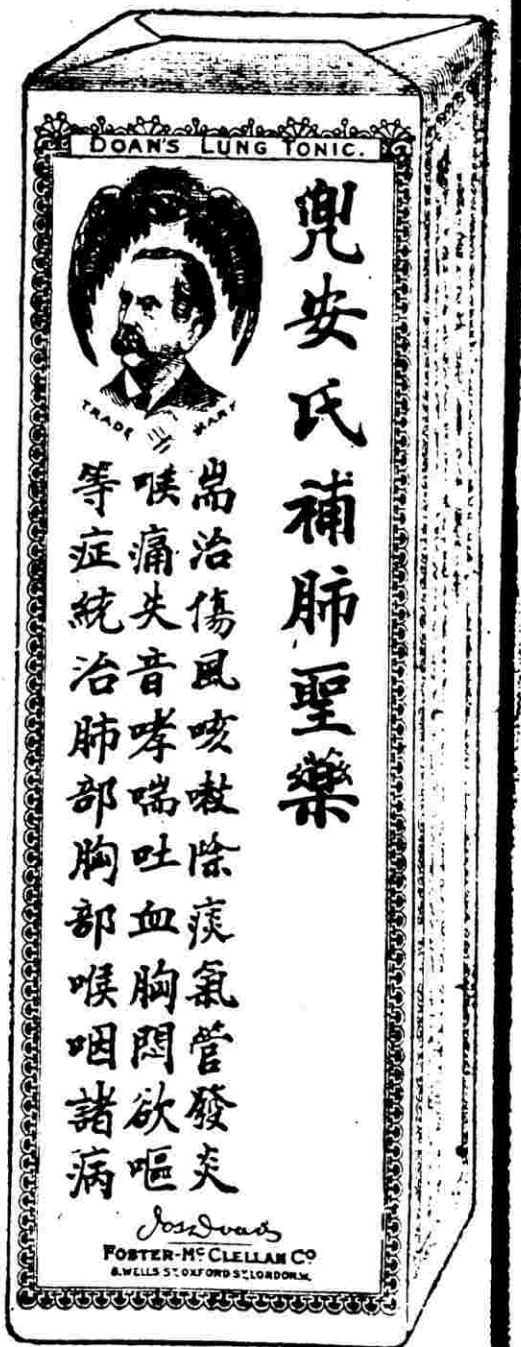 DOAN'S LUNG TONIC.
兜安氏補肺聖藥
TRADE MARK
耑治傷風咳嗽除痰氣管發炎
喉痛失音哮喘吐血胸悶欲嘔
等症統治肺部胸部喉咽諸病
FOSTER-McCLELLAN Co
8, WELLS ST OXFORD ST, LONDON, W.